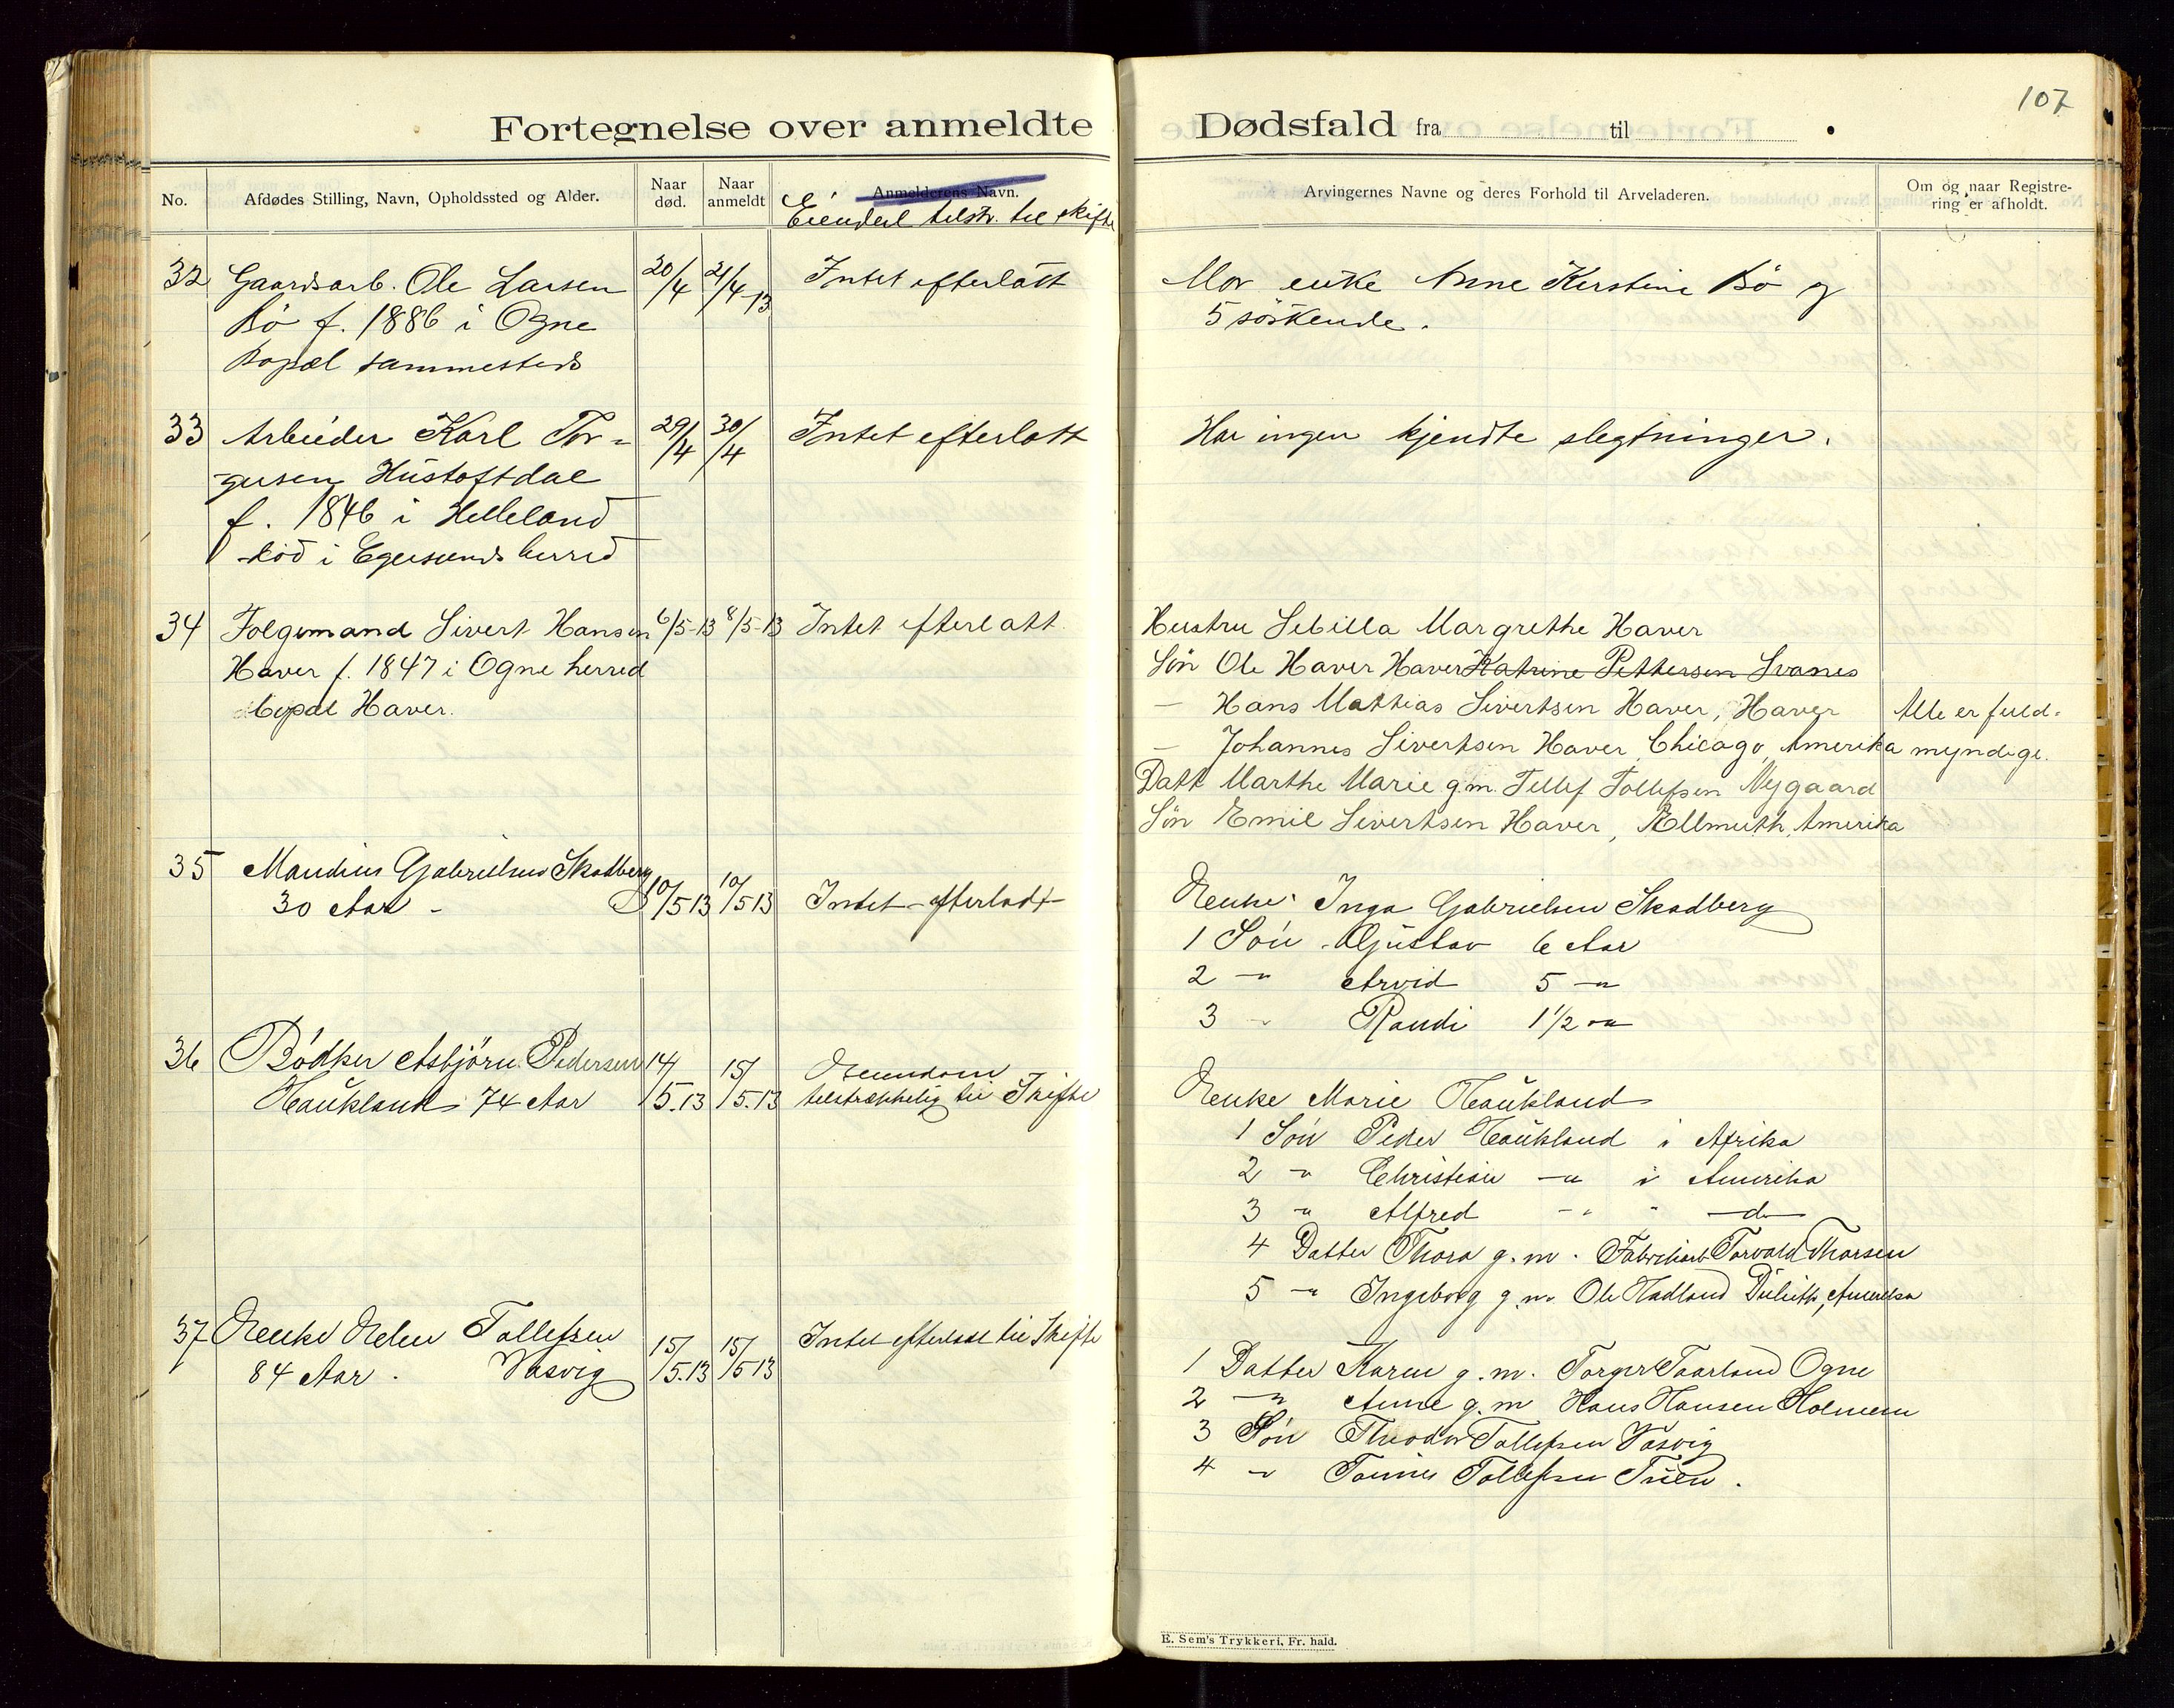 107
Fortegnelse over anmeldte Dødsfald fra til .
No.
Afdødes Stilling, Navn, Opholdssted og Alder.
Naar død.
Naar anmeldt
Anmelderens Navn.
Eiendel tilstr. til skifte
Arvingernes Navne og deres Forhold til Arveladeren.
Om og naar Registre-
ring er afholdt.
32 Gaardsarb. Ole Larsen 20/4 21/4-13 Intet efterlatt
Bö f. 1886 i Ogne
Bopæl sammesteds
Mor enke Anne Kerstine Bö og
5 söskende.
33 Arbeider Karl Tor- 29/4 30/4 Intet efterlatt
-gersen Hustoftdal
f. 1846 i Helleland
död i Egersunds herred
Har ingen kjendte slegtninger.
34 Folgemand Sivert Hansen 6/5-13 8/5-13 Intet efterlatt.
Haver f. 1847 i Ogne herred
bopæl Haver.
Hustru Sebilla Margrethe Haver
Sön Ole Haver Haver Katrine Pettersen Svanes
— Hans Mathias Sivertsen Haver, Haver Alle er fuld-
— Johannes Sivertsen Haver, Chicago, Amerika myndige.
Datt Marthe Marie g.m. Tellef Tollefsen Nygaard
Sön Emil Sivertsen Haver, Ellmuth, Amerika
35 Mandius Gabrielsen Skadberg
30 Aar - 10/5 13 10/5 13 Intet efterladt
Enke Inga Gabrielsen Skadberg
1 Sön Gustav 6 Aar
2 -"- Arvid 5 -"-
3 - Randi 1 1/2 -"-
36 Bödker Asbjörn Pedersen 14/5.13 15/5.13 Eiendom
Haukland 74 Aar tilstrækkelig til Skifte
Enke Marie Haukland
1 Sön Peder Haukland i Afrika
2 -"- Christian -"- i Amerika
3 -"- Alfred -"- " -d-
4 Datter Thora g.m. Fabrikarb Torvald Thorsen
5 -"- Ingeborg g.m. Ole Hadland Duluth, Amerika
37 Enke Elen Tollefsen 15/5.13 15/5 13 Intet efterladt til Skifte
84 Aar. Vasvig
1 Datter Karen g.m. Torger Taarland Ogne
2 -"- Anne g.m Hans Hansen Holmen
3 Sön Theodor Tollefsen Vasvig
4 -"- Tönnes Tollefsen Tuen.
E. Sem's Trykkeri, Fr. hald.